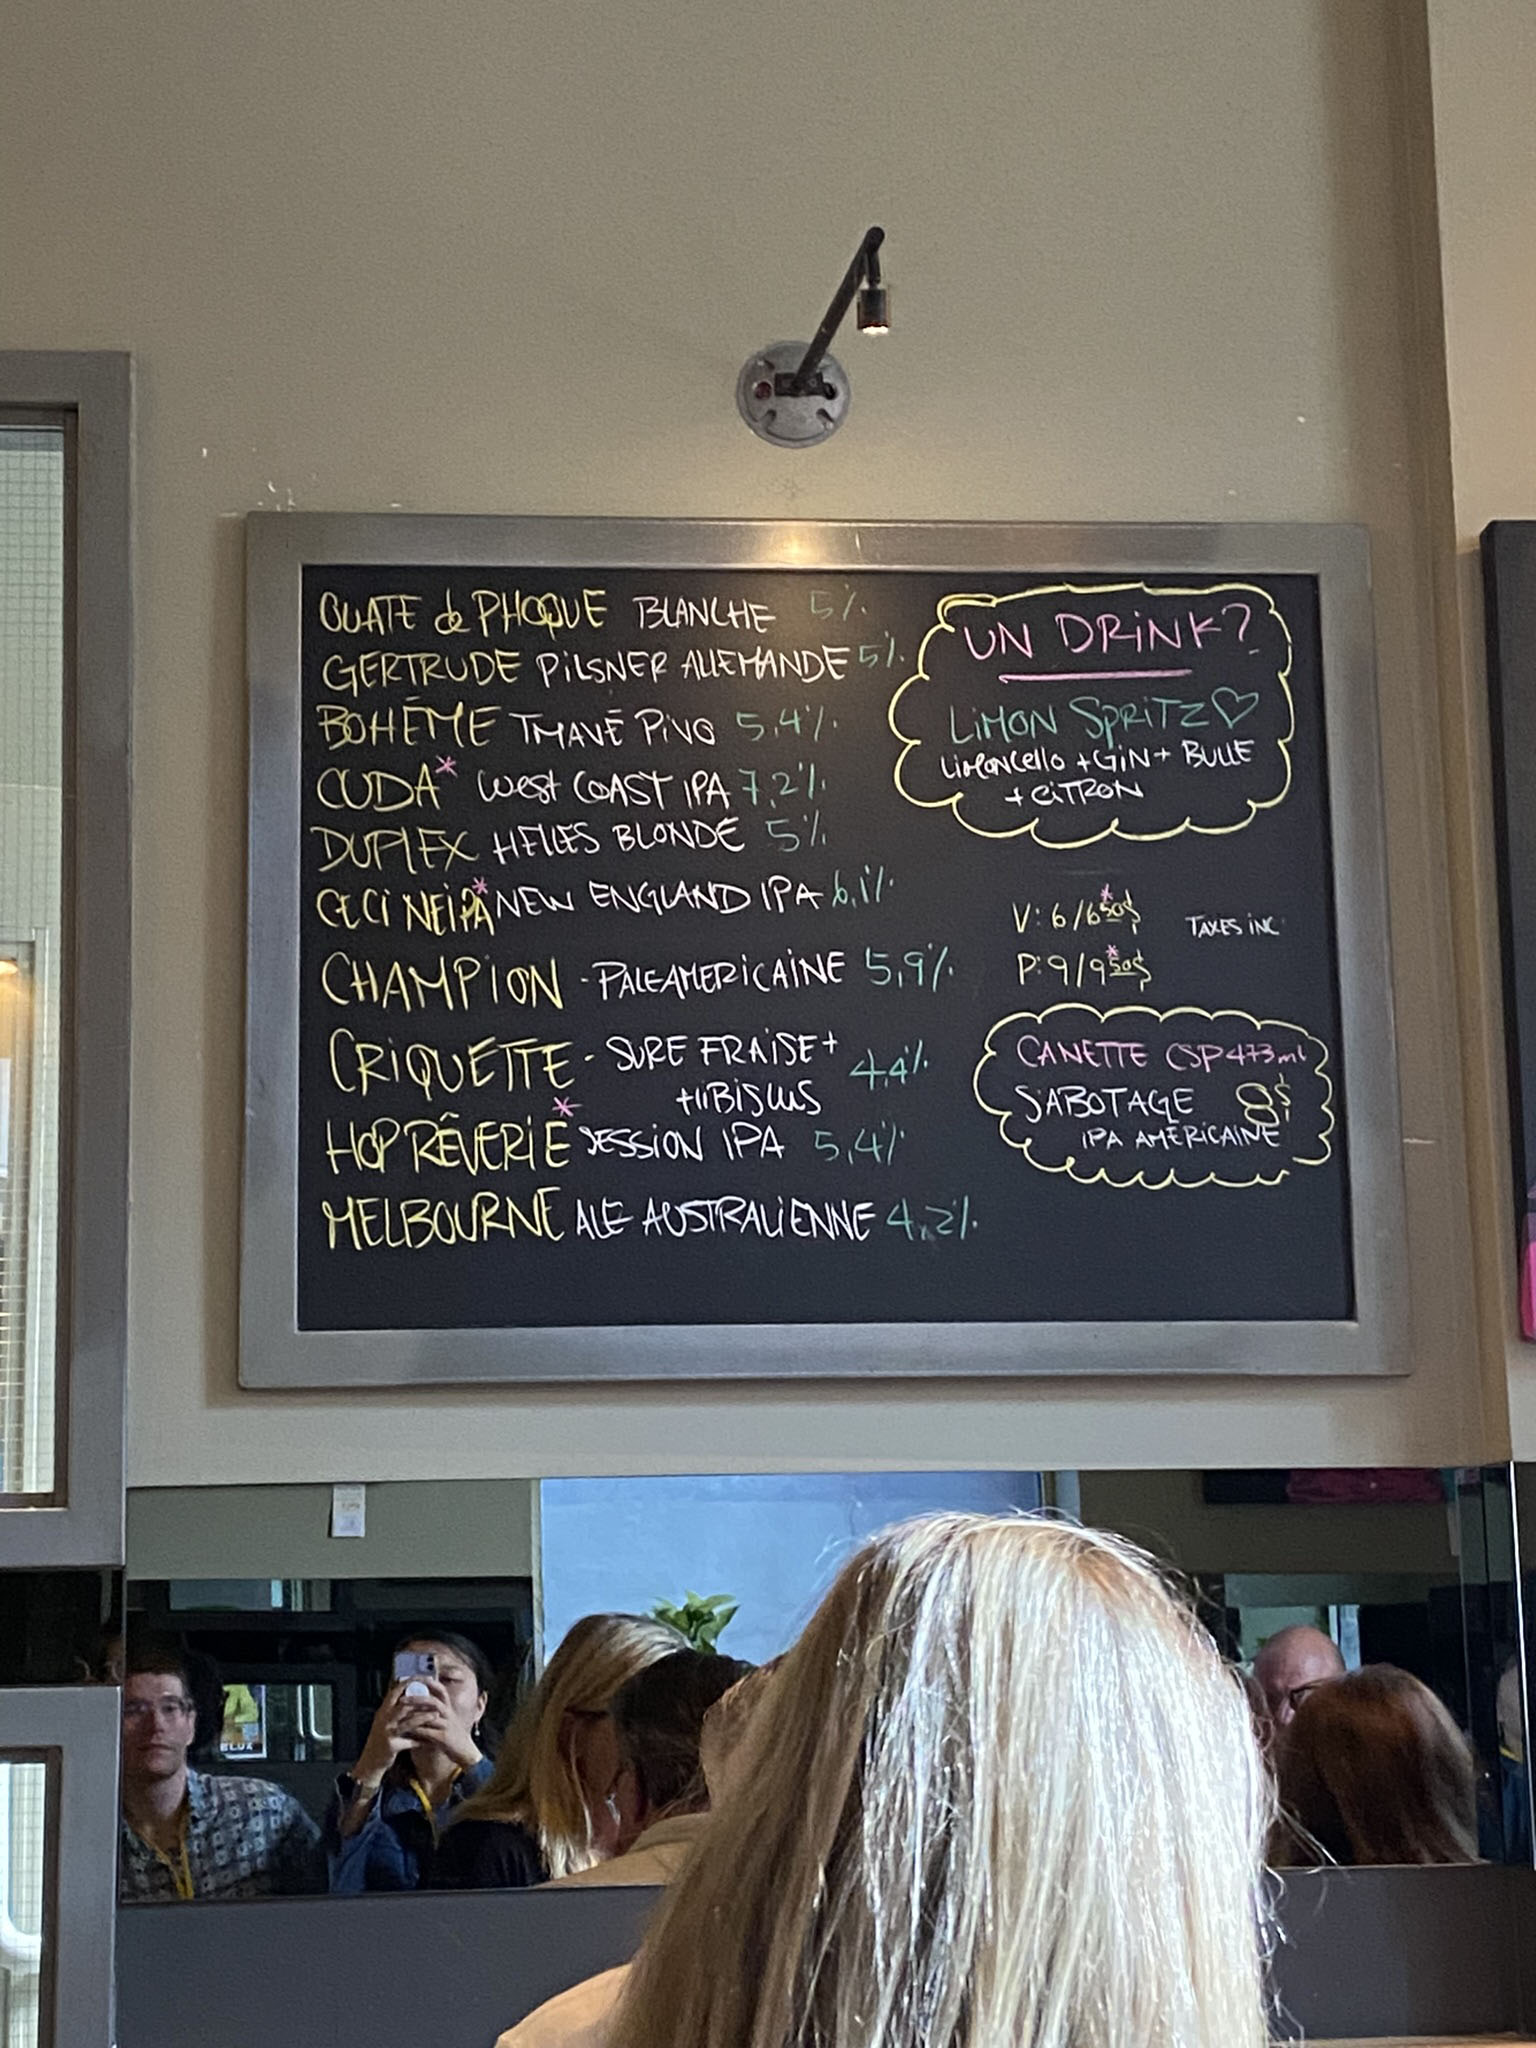 OUATE de PHOQUE BLANCHE 5%
GERTRUDE PILSNER ALLEMANDE 5%
BOHÈME TMAVÉ PIVO 5,4%
CUDA* West COAST IPA 7,2%
DUPLEX HELLES BLONDE 5%
CECI NEIPA* NEW ENGLAND IPA 6,1%
CHAMPION - PALE AMERICAINE 5,9%
CRIQUETTE - SURE FRAISE +
HIBISCUS 4,4%
HOP RÊVERIE* SESSION IPA 5,4%
MELBOURNE ALE AUSTRALIENNE 4,2%
UN DRINK?
LIMON SPRITZ ♡
LIMONCELLO + GIN + BULLE
+ CITRON
V: 6/6 50$* TAXES INC
P: 9/9 50$*
CANETTE CSP 473ml
SABOTAGE 8$
IPA AMÉRICAINE